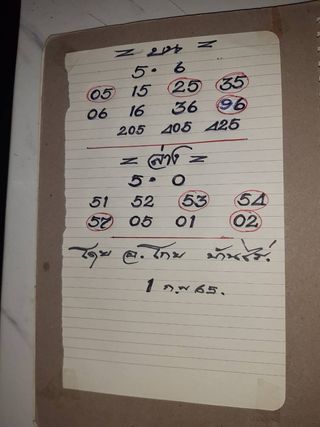 = บน =
5 · 6
05 15 25 35
06 16 36 96
205 405 425
= ล่าง =
5 · 0
51 52 53 54
57 05 01 02
โดย อ. โทย บ้านไร่.
1 ก.พ 65.